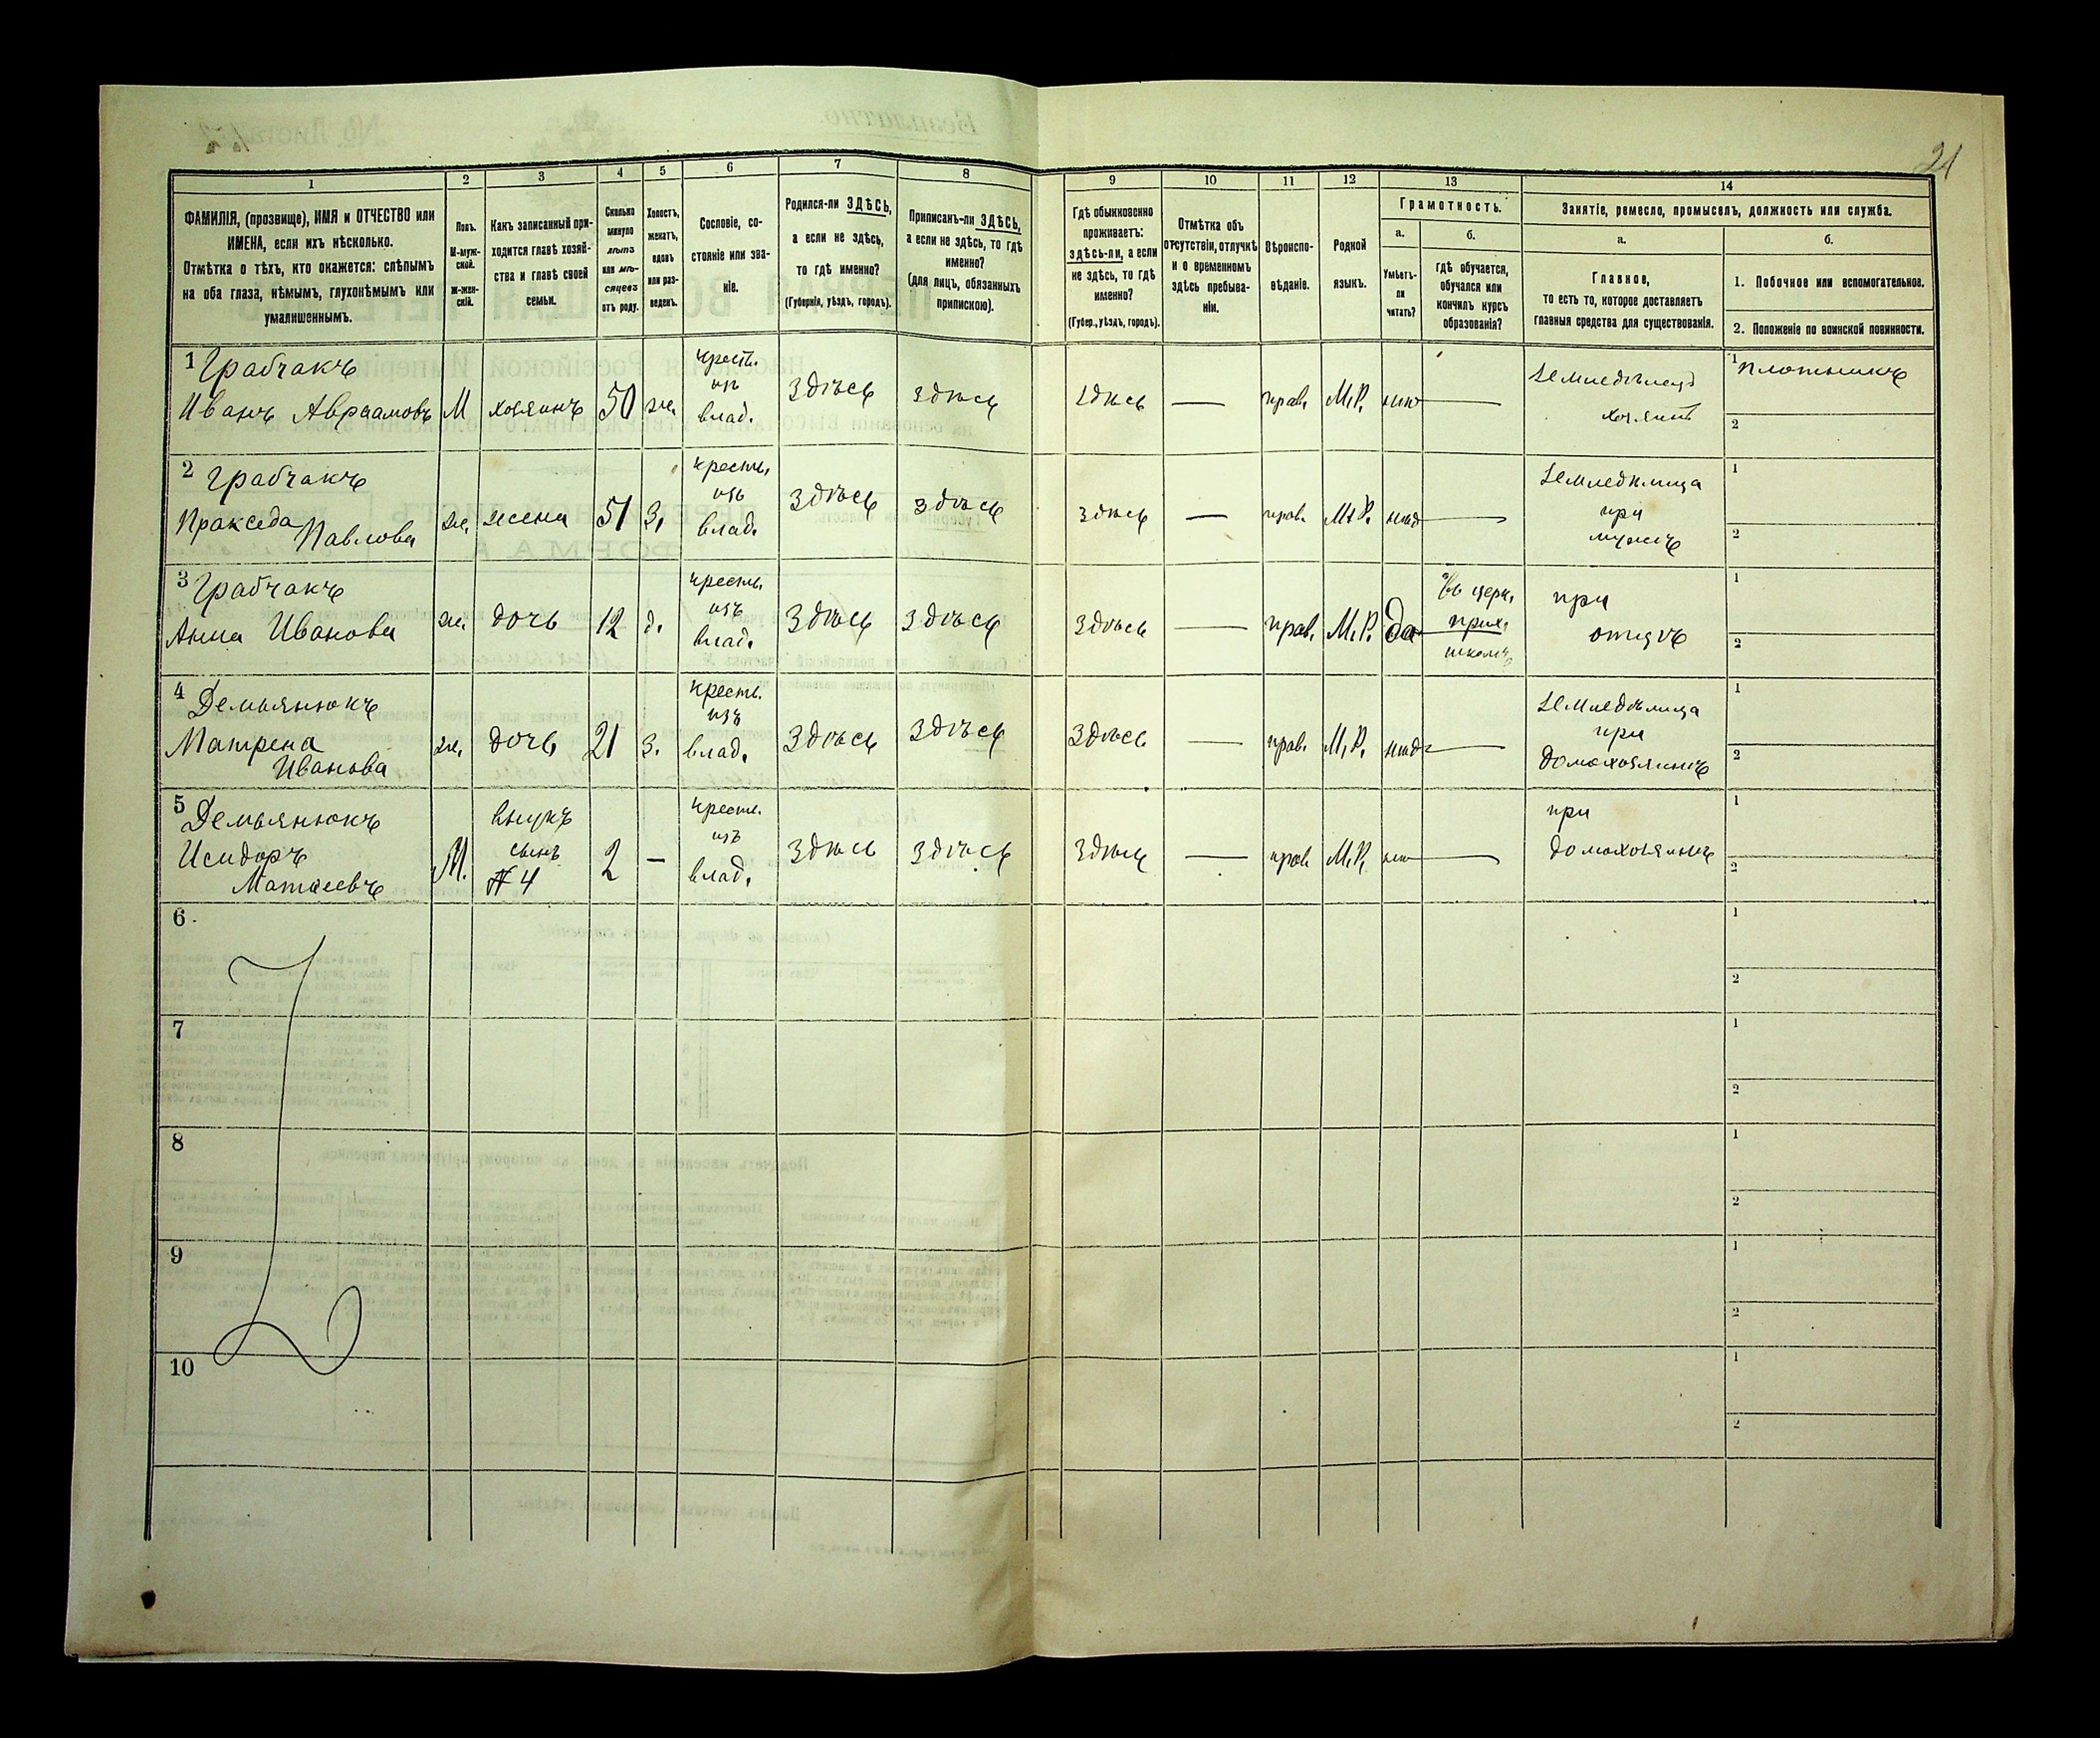 21
1 2 3 4 5 6 7 8 9 10 11 12 13 14
ФАМИЛІЯ, (прозвище), ИМЯ и ОТЧЕСТВО или
ИМЕНА, если ихъ нѣсколько.
Отмѣтка о тѣхъ, кто окажется: слѣпымъ
на оба глаза, нѣмымъ, глухонѣмымъ или
умалишеннымъ.
Полъ.
М-муж-
ской.
Ж-жен-
скій.
Какъ записанный при-
ходится главѣ хозяй-
ства и главѣ своей
семьи.
Сколько
минуло
лѣтъ
или мѣ-
сяцевъ
отъ роду.
Холостъ,
женатъ,
вдовъ
или раз-
веденъ.
Сословіе, со-
стояніе или зва-
ніе.
Родился-ли ЗДѢСЬ,
а если не здѣсь,
то гдѣ именно?
(Губернія, уѣздъ, городъ).
Приписанъ-ли ЗДѢСЬ,
а если не здѣсь, то гдѣ
именно?
(для лицъ, обязанныхъ
припискою).
Гдѣ обыкновенно
проживаетъ:
здѣсь-ли, а если
не здѣсь, то гдѣ
именно?
(Губер., уѣздъ, городъ).
Отмѣтка объ
отсутствіи, отлучкѣ
и о временномъ
здѣсь пребыва-
ніи.
Вѣроиспо-
вѣданіе.
Родной
языкъ.
Грамотность.
а.
Умѣетъ-
ли
читать?
б.
гдѣ обучается,
обучался или
кончилъ курсъ
образованія?
Занятіе, ремесло, промыселъ, должность или служба.
а.
Главное,
то есть то, которое доставляетъ
главныя средства для существованія.
б.
1. Побочное или вспомогательное.
2. Положеніе по воинской повинности.
1 Грабчакъ
Иванъ Авраамовъ
М
хозяинъ
50
же.
крест.
изъ
влад.
Здѣсь
здѣсь
здѣсь
—
прав.
М.Р.
нѣт
—
Земледѣлецъ
хозяинъ
1 плотникъ
2
2 Грабчакъ
Пракседа
Павлова
же.
жена
51
З.
крестн.
изъ
влад.
Здѣсь
здѣсь
здѣсь
—
прав.
М.Р.
нѣт
—
Земледѣлица
при
мужѣ
1
2
3 Грабчакъ
Анна Иванова
же.
дочь
12
д.
крестн.
изъ
влад.
Здѣсь
Здѣсь
здѣсь
—
прав.
М.Р.
Да
Въ церк.
прих.
школѣ
при
отцѣ
1
2
4 Демьянюкъ
Матрена
Иванова
же.
дочь
21
З.
крест.
изъ
влад.
Здѣсь
здѣсь
здѣсь
—
прав.
М.Р.
нѣт
—
Земледѣлица
при
домохозяинѣ
1
2
5 Демьянюкъ
Исидоръ
Матѳеевъ
М.
внукъ
сынъ
№ 4
2
—
крест.
изъ
влад.
Здѣсь
здѣсь
здѣсь
—
прав.
М.Р.
нѣт
—
при
домохозяинѣ
1
2
6
1
2
7
1
2
8
1
2
9
1
2
10
1
2